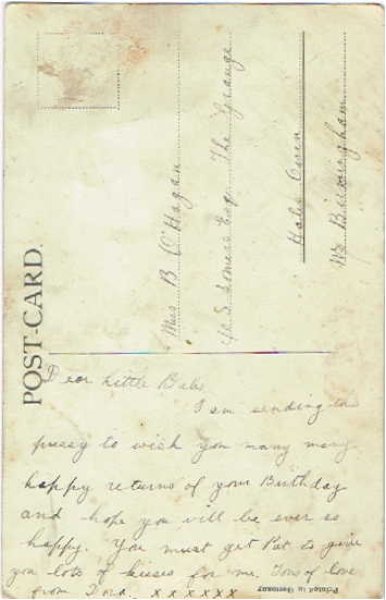 POST-CARD.
Miss B O'Hagan
c/o S. Somers Esq. The Grange
Hales Owen
Nr Birmingham
Dear Little Babs
I am sending this
pussy to wish you many many
happy returns of your Birthday
and hope you will be ever so
happy. You must get Pat to give
you lots of kisses for me. Tons of love
from Dora. x x x x x x
Printed in Germany